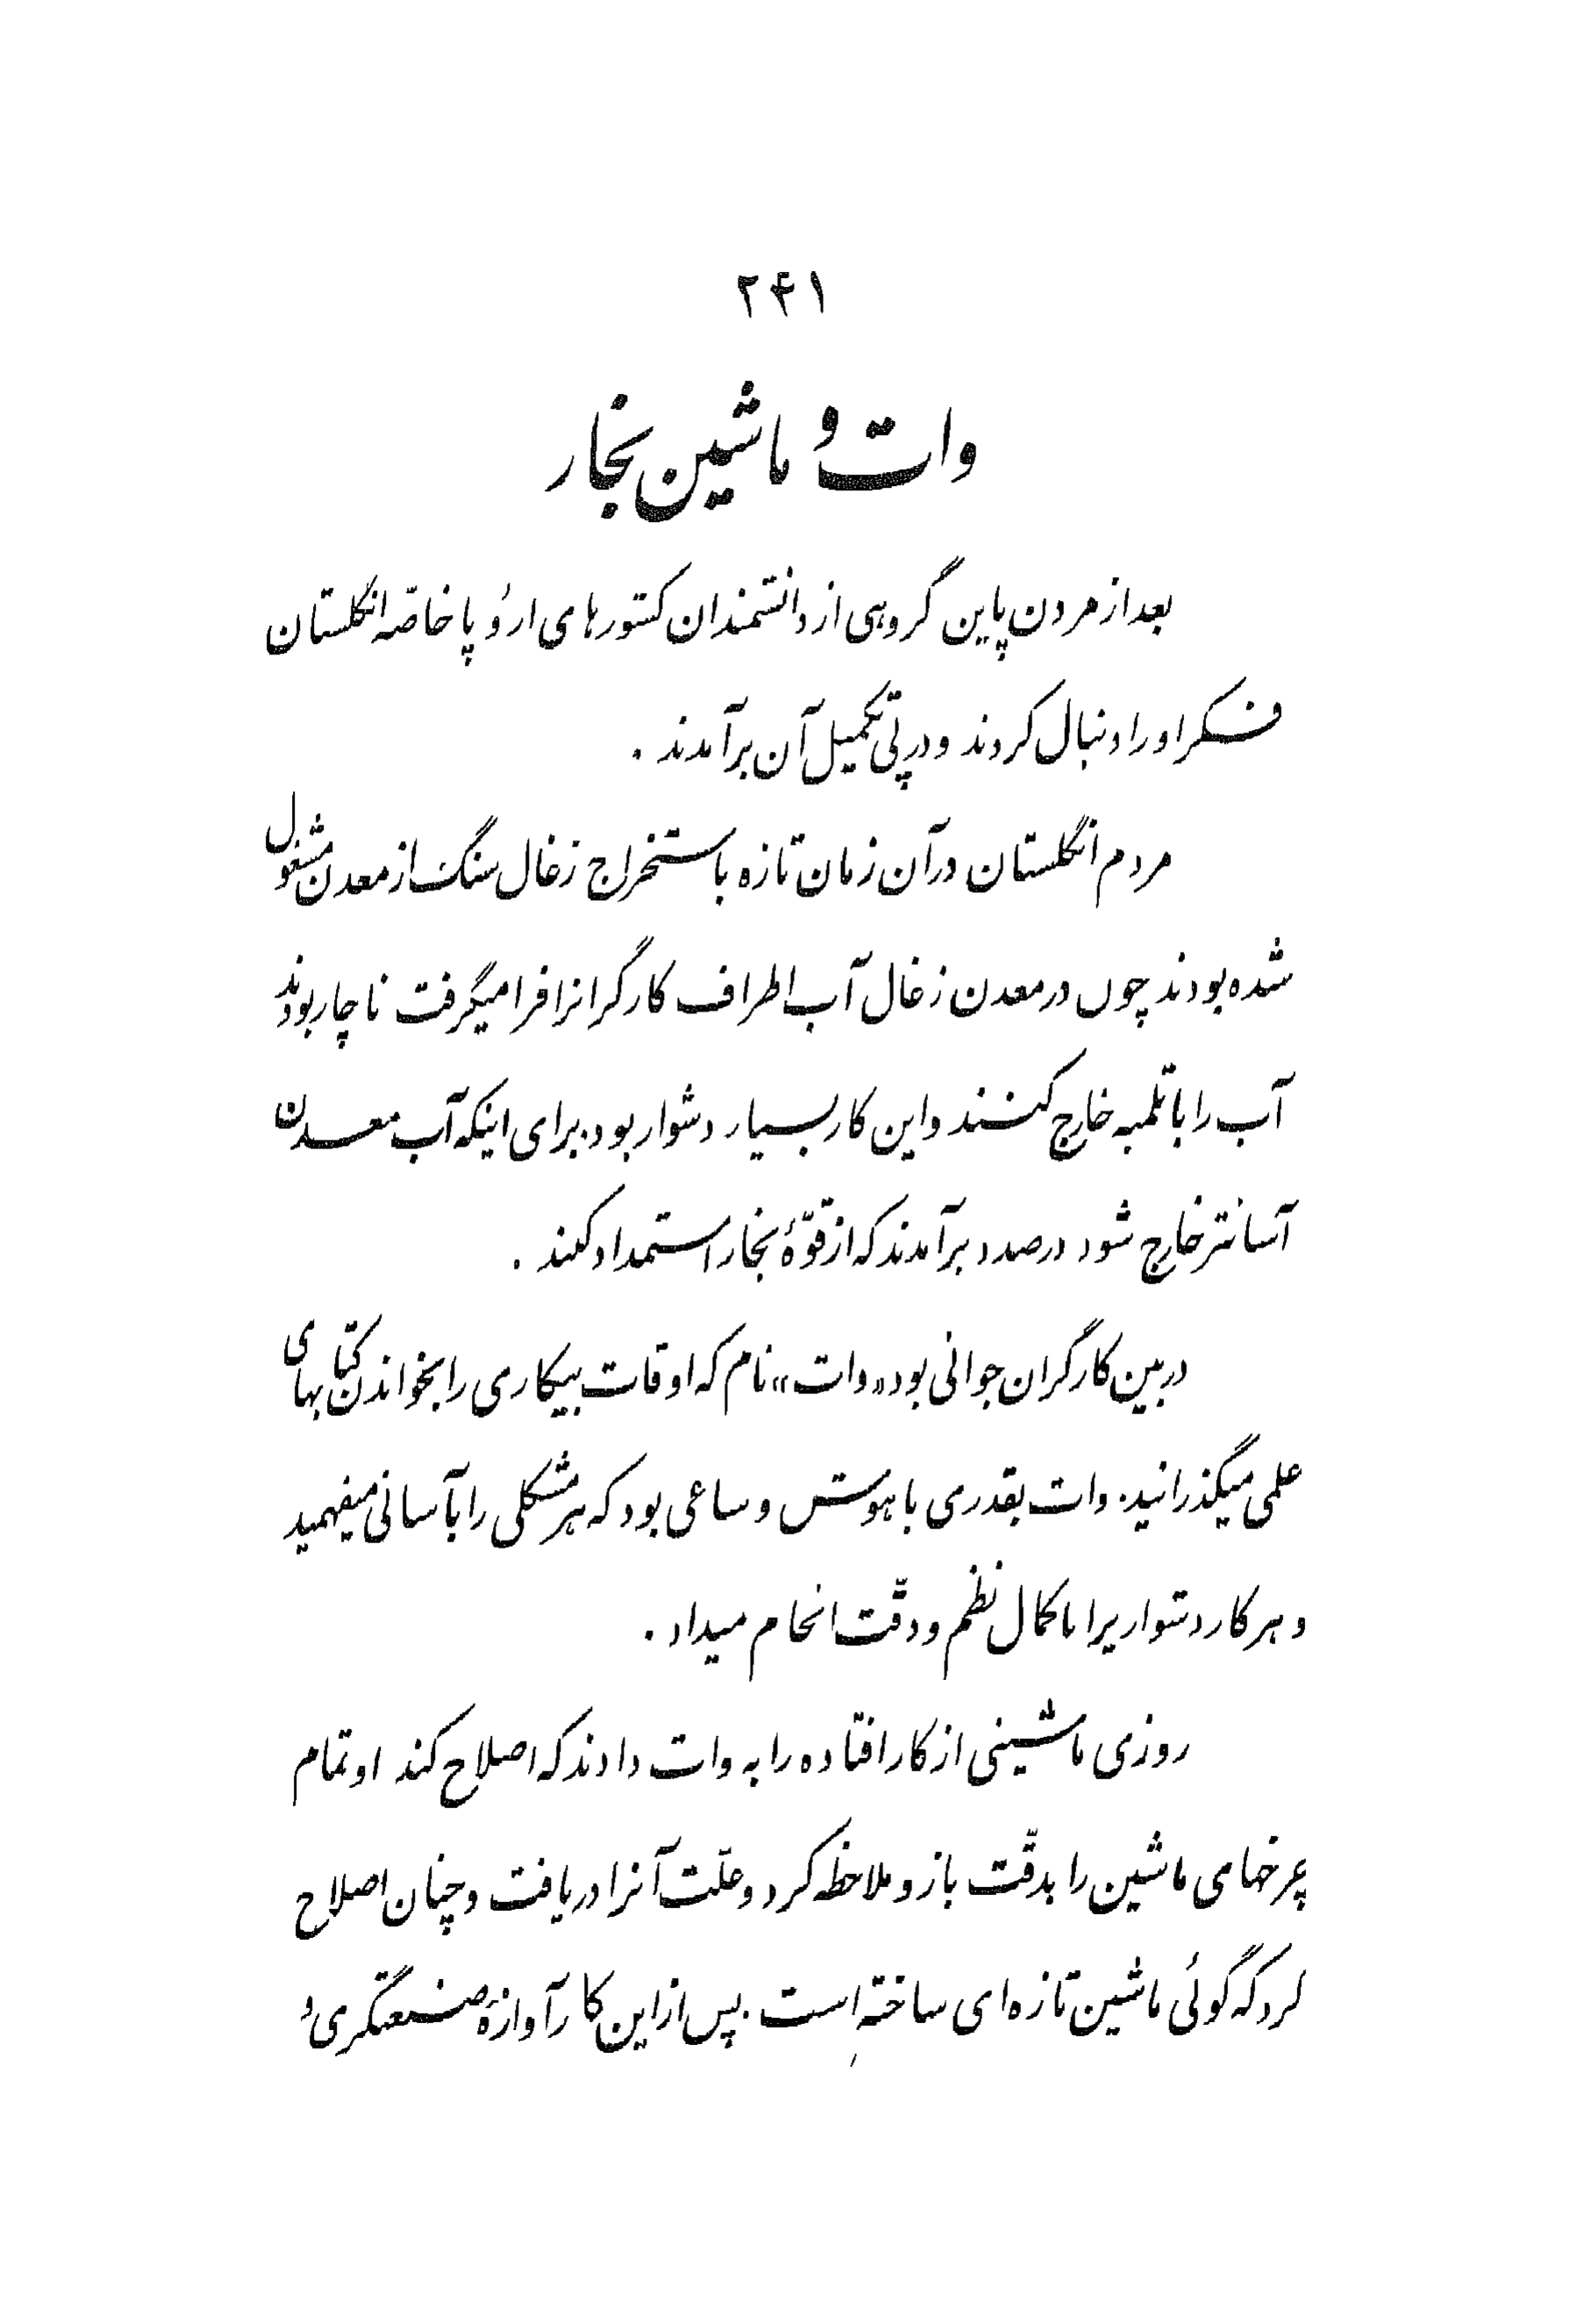 ۲۴۱
وات و ماشین بخار
بعد از مردن پاپن گروهی از دانشمندان کشورهای اروُپا خاصّه انگلستان
فکر او را دنبال کردند و در پی تکمیل آن برآمدند .
مردم انگلستان در آن زمان تازه باستخراج زغال سنگ از معدن مشغول
شده بودند چون در معدن زغال آب اطراف کارگرانرا فرا میگرفت ناچار بودند
آب را با تلمبه خارج کنند و این کار بسیار دشوار بود . برای اینکه آب معدن
آسانتر خارج شود درصدد برآمدند که از قوّهٔ بخار استمداد کنند .
در بین کارگران جوانی بود «وات» نام که اوقات بیکاری را بخواندن کتابهای
علمی میگذرانید . وات بقدری باهوش و ساعی بود که هر مشکلی را بآسانی میفهمید
و هر کار دشواریرا با کمال نظم و دقّت انجام میداد .
روزی ماشینی از کار افتاده را به وات دادند که اصلاح کند او تمام
چرخهای ماشین را بدقّت باز و ملاحظه کرد و علّت آنرا دریافت و چنان اصلاح
کرد که گوئی ماشین تازه‌ای ساخته است . پس از این کار آوازهٔ صنعتگری و